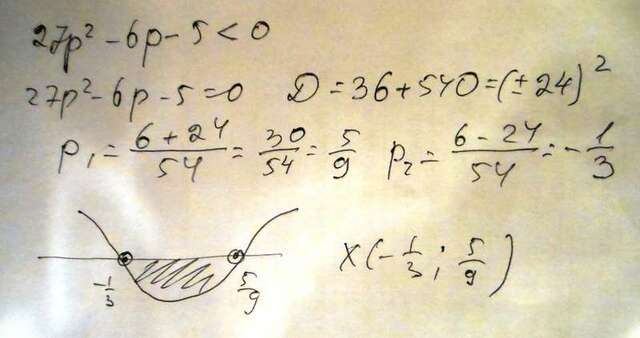 27p² - 6p - 5 < 0
27p² - 6p - 5 = 0 D = 36 + 540 = (± 24)²
p₁ = (6 + 24)/54 = 30/54 = 5/9 p₂ = (6 - 24)/54 = -1/3
-1/3 5/9 x(-1/3; 5/9)